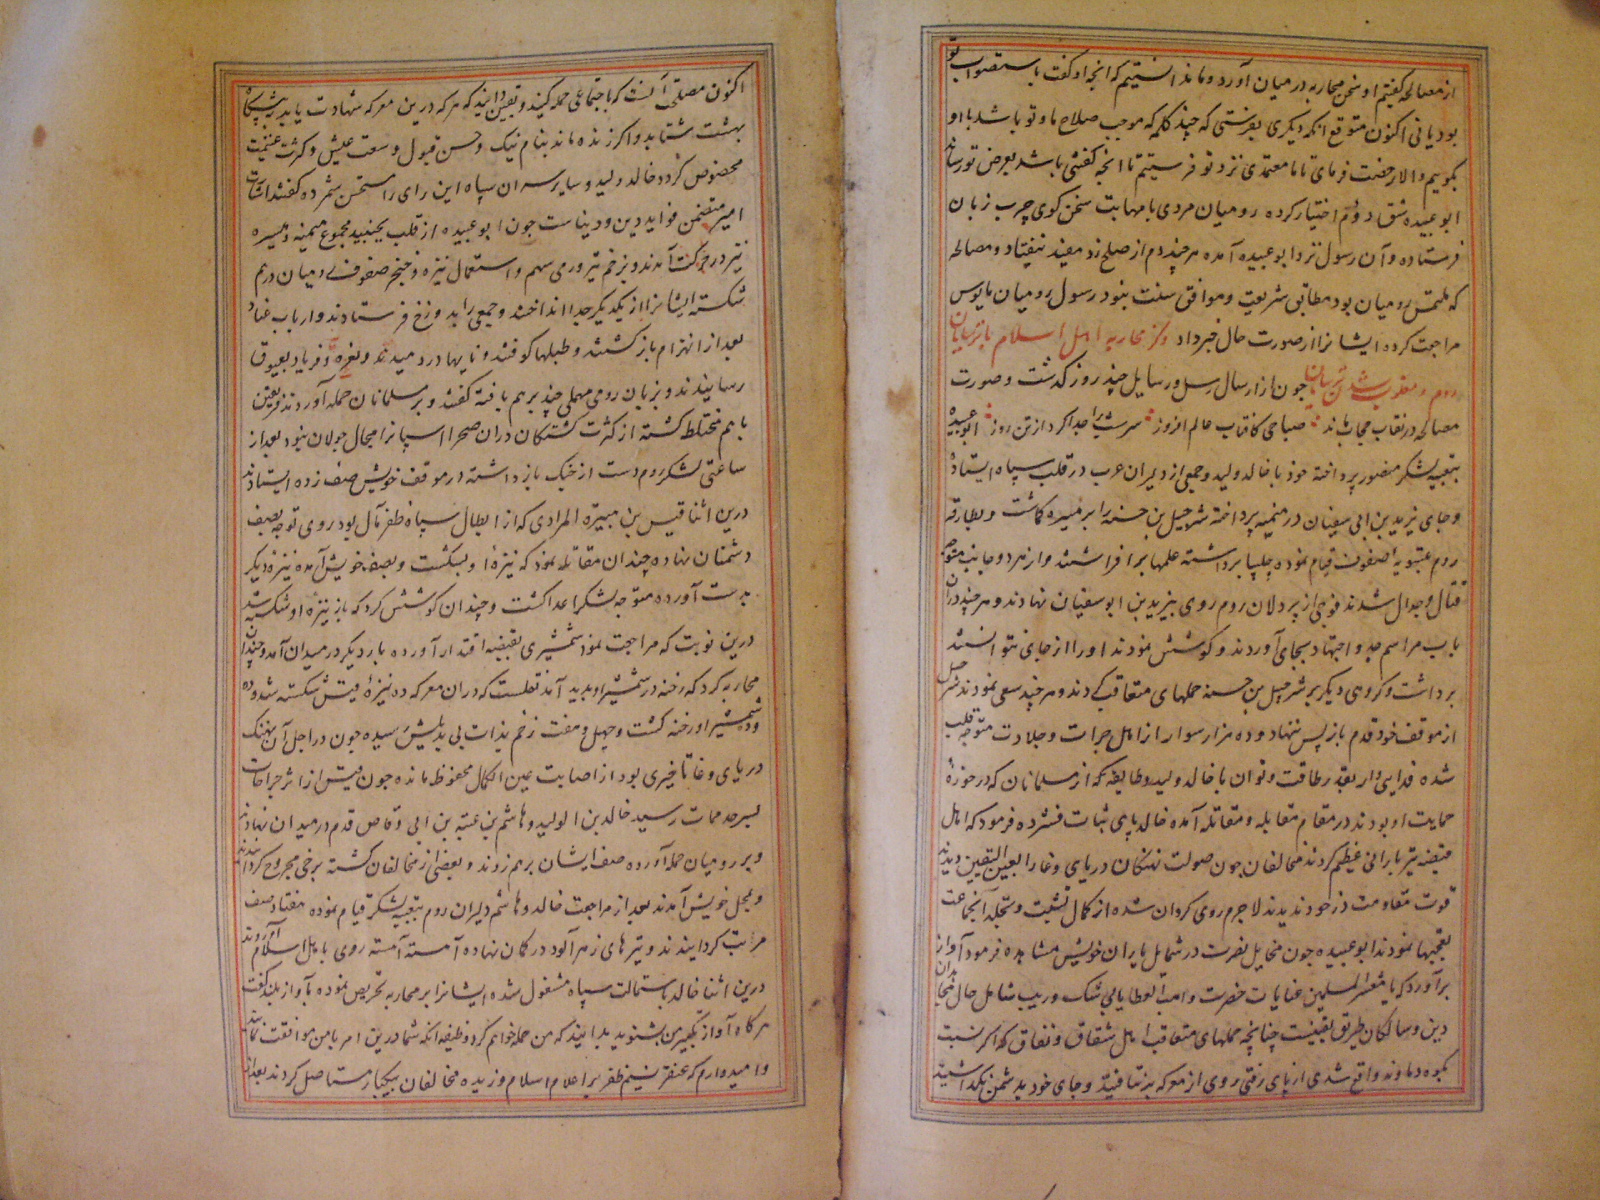 از مصالحه گفتیم او سخن محاربه در میان آورد و ما ندانستیم که انچه او گفت باستصواب تو
بود یا نی اکنون متوقع انکه دیگری بفرستی که چند کلمه که موجب صلاح ما و تو باشد با او
بگوییم والا رخصت فرمای تا ما معتمدی نزد تو فرستیم تا انچه گفتنی باشد بعرض تو رساند
ابو عبیده شق دوم اختیار کرده رومیان مردی با مهابت سخن کوی چرب زبان
فرستاده و آن رسول نزد ابو عبیده آمده هر چند دم از صلح زد مفید نیفتاد و مصالحه
که ملتمس رومیان بود مطابق شریعت و موافق سنت نبود رسول رومیان مایوس
مراجعت کرده ایشانرا از صورت حال خبر داد ذکر محاربه اهل اسلام با ترسایان
روم و مغلوب شدن ترسایان جون از ارسال رسل و رسایل چند روز کذشت و صورت
مصالحه در نقاب حجاب ماند صباحی کافتاب عالم افروز سر شب را جدا کرد از تن روز ابو عبیده
بتعبیه لشکر منصور پرداخته خود با خالد ولید و جمعی از دلیران عرب در قلب سپاه ایستاد
و جای یزید بن ابی سفیان در میمنه پرداخته شرجیل بن حسنه را بر میسره کماشت و بطارقه
روم بتسویه صفوف قیام نموده چلیپا برداشته علمها بر افراشتند و از هر دو جانب متوجه
قتال و جدال شدند فوجی از پر دلان روم روی بیزید بن ابو سفیان نهادند و هر چند در ان
باب مراسم جد و اجتهاد بجای آوردند و کوشش نمودند او را از جای نتوانستند
برداشت و کروهی دیکر بر شرجیل بن حسنه حملهای متعاقب کردند و هر چند سعی نمودند شرجیل
از موقف خود قدم باز پس ننهاد و ده هزار سوار از اهل جرات و جلادت متوجه قلب
شده فدایی وار بقدر طاقت و توان با خالد ولید و طایفه که از مسلمانان که در حوزهٔ
حمایت او بودند در مقام مقابله و مقاتله آمده خالد پای ثبات فشرده فرمود که اهل
میمنه تیر بارانی عظیم کردند مخالفان جون صولت نهنکان دریای وغا را بعین الیقین دیدند
قوت مقاومت در خود ندیدند لاجرم روی کردان شده از کمال تشبت و تجلد آنجماعت
تعجبها نمودند ابو عبیده جون مخایل نصرت در شمایل یاران خویش مشاهده فرمود آواز
برآورد که یا معشر المسلمین عنایات حضرت واهب العطایا بی شک و ریب شامل حال مجاهدان
دین و سالکان طریق یقینست چنانچه حملهای متعاقب اهل شقاق و نفاق که اکر نسبت
بکوه دماوند واقع شدی از پای رفتی روی از معرکه بر نتافتید و جای خود بدشمن نکذاشتید
اکنون مصلحت آنست که باجتماعی حمله کنید و یقین دانید که هر که درین معرکه شهادت یابد به پیشکاه
بهشت شتابد و اکر زنده ماند بنام نیک و حسن قبول و سعت عیش و کثرت غنیمت
مخصوص کردد خالد ولید و سایر سران سپاه این رای را مستحسن شمرده کفتند اشارت
امیر متضمن فواید دین و دنیاست جون ابو عبیده از قلب بجنبید مجموع میمنه و میسره
نیز در حرکت آمدند و بزخم تیر و رمی سهم و استعمال نیزه و خنجر صفوف رومیان درهم
شکسته ایشانرا از یکدیکر جدا انداختند و جمعی را بدوزخ فرستادند و ارباب عناد
بعد از انهزام باز کشتند و طبلها کوفتند و نایها در دمیدند و نعره و فریاد بعیوق
رسانیدند و بزبان رومی مهملی چند بر هم بافته کفتند و بر مسلمانان حمله آوردند فریقین
با هم مختلط کشته از کثرت کشتکان در ان صحرا اسپانرا مجال جولان نبود بعد از
ساعتی لشکر روم دست از جنک باز داشته در موقف خویش صف زده ایستادند
درین اثنا قیس بن هبیره المرادی که از ابطال سپاه ظفر مآل بود روی توجه بصف
دشمنان نهاده چندان مقاتله نمود که نیزهٔ او بشکست و بصف خویش آمده نیزه دیکر
بدست آورده متوجه لشکر اعدا کشت و چندان کوشش کرد که باز نیزه او شکسته شد
درین نوبت که مراجعت نمود شمشیری بقبضه اقتدار آورده بار دیکر در میدان آمد و چندان
محاربه کرد که رخنه در شمشیر او پدید آمد نقلست که در ان معرکه ده نیزهٔ قیس شکسته شد و ده
شمشیر او رخنه کشت و چهل و هفت زخم بذات بی بدیلش رسیده جون در اجل آن نهنک
دریای وغا تاخیری بود از اصابت عین الکمال محفوظ مانده جون قیس از اثر جراحات
بسر حد ممات رسید خالد بن الولید و هاشم بن عتبه بن ابی وقاص قدم در میدان نهادند
و بر رومیان حمله آورده صف ایشان بر هم زدند و بعضی از مخالفان کشته برخی مجروح کردانیدند
و بمحل خویش آمدند بعد از مراجعت خالد و هاشم دلیران روم بتعبیه لشکر قیام نموده هفتاد صف
مرتب کردانیدند و تیرهای زهر آلود در کمان نهاده آهسته آهسته روی باهل اسلام آوردند
درین اثنا خالد باستمالت سپاه مشغول شده ایشانرا بر محاربه تحریص نموده بآواز بلند کفت
هر کاه آواز تکبیر من بشنوید بدانید که من حمله خواهم کرد وظیفه انکه شما درین امر با من موافقت نمایید
و امیدوارم که عنقریب نسیم ظفر بر اعلام اسلام وزیده مخالفان بیکبار مستاصل کردند بعد از